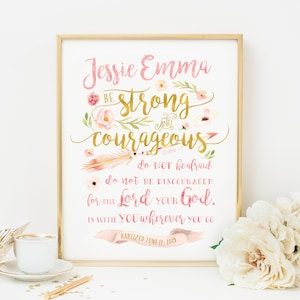 Jessie Emma
BE strong
AND
courageous
do NOT be afraid
do not BE DISCOURAGED
for the Lord your God,
is with YOU wherever you go
BAPTIZED JUNE